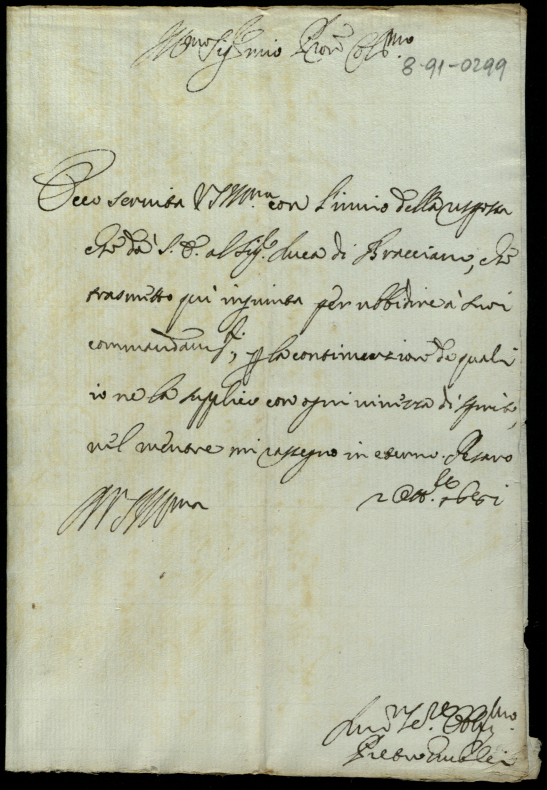 Ill.mo Sig.r mio P.ron Col.mo
8-91-0299
Ecco servita VS Ill.ma con l'invio della risposta
che dà S. E. al Sig.r Duca di Bracciano, che
trasmetto quì ingiunta per ubbidire à suoi
commandam.ti, p la continuazione de quali
io ne la supplico con ogni vivezza di spirito,
nel mentre mi rassegno in eterno. Pesaro
2 Ott.bre
Di VS Ill.ma
Dev.mo Ser.re Obl.mo
Pietro